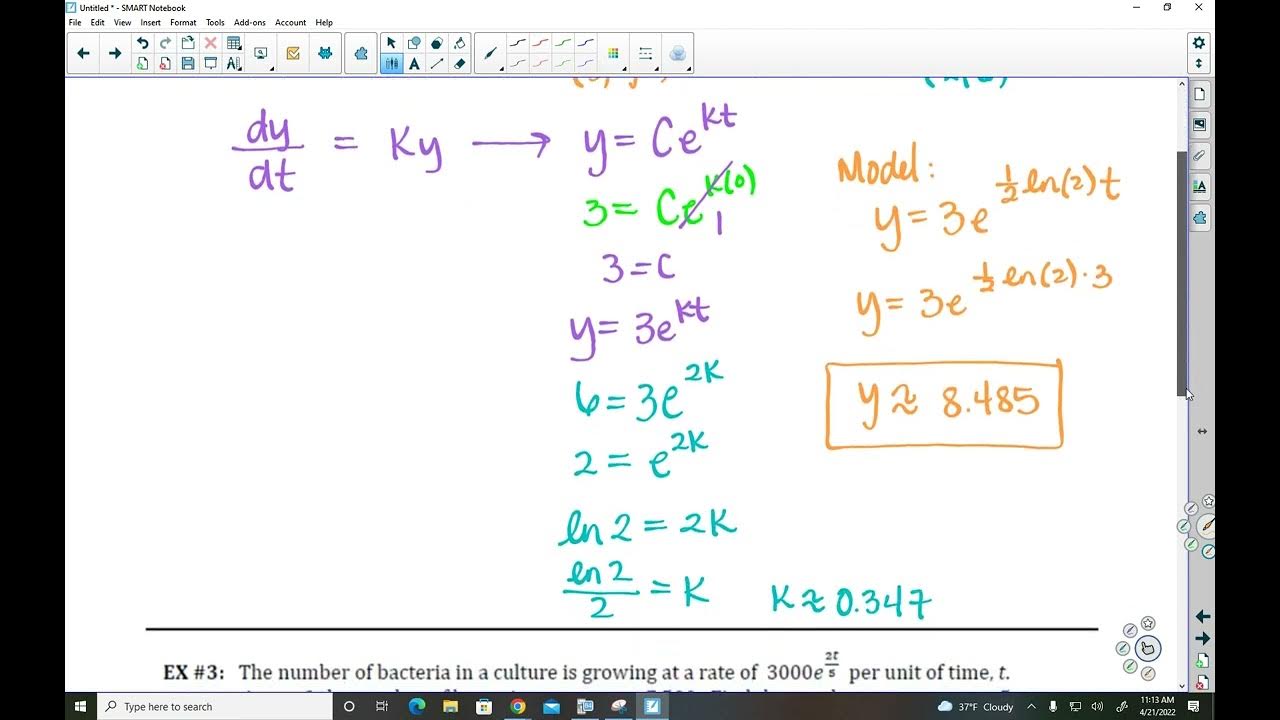 Untitled * - SMART Notebook
File Edit View Insert Format Tools Add-ons Account Help
dy/dt = Ky → y = Ce^kt
3 = Ce^k(0)
1
3 = C
y = 3e^kt
6 = 3e^2K
2 = e^2K
ln 2 = 2K
ln 2/2 = K K ≈ 0.347
Model:
y = 3e^½ ln(2)t
y = 3e^½ ln(2)·3
y ≈ 8.485
EX #3: The number of bacteria in a culture is growing at a rate of 3000e^2t/5 per unit of time, t.
Type here to search
37°F Cloudy
11:13 AM
4/21/2022